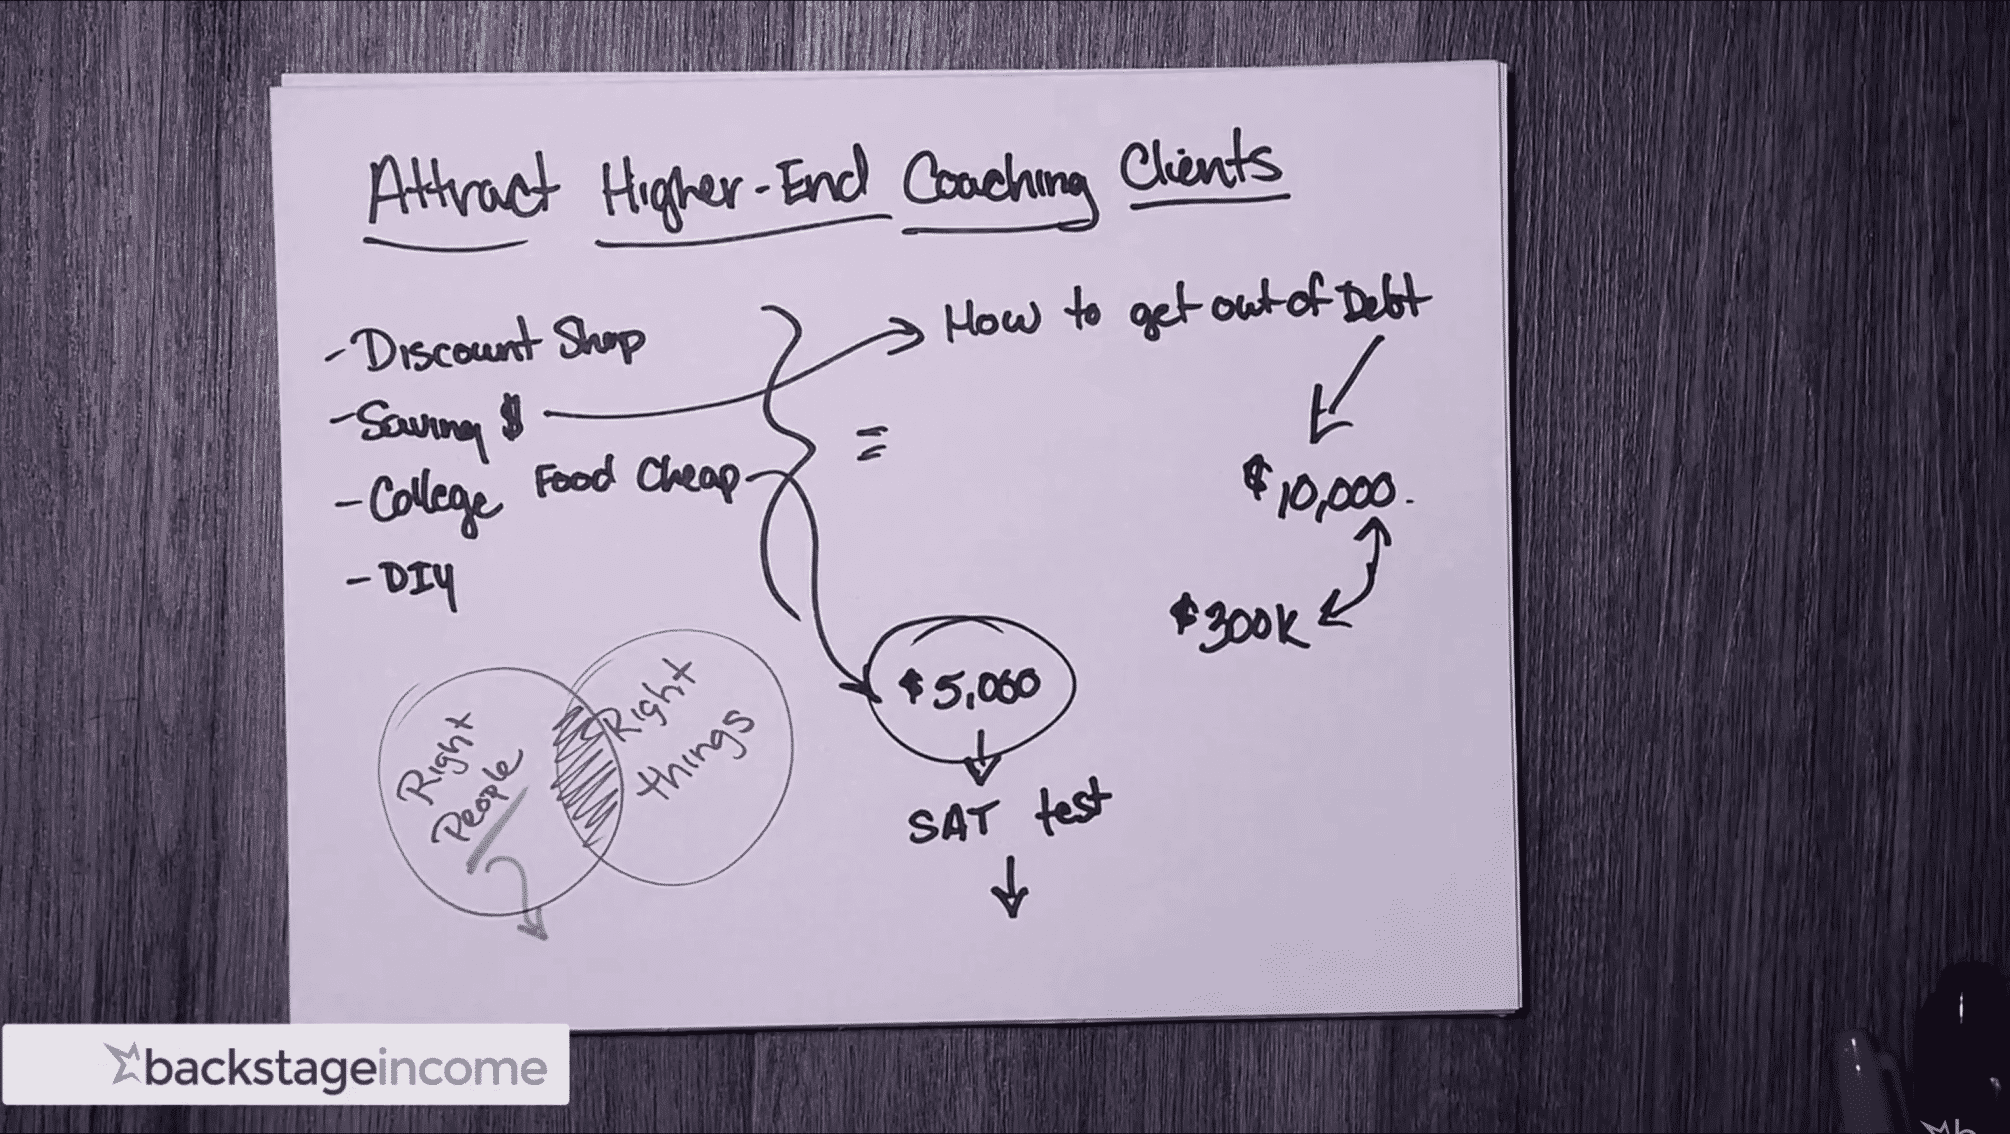 Attract Higher-End Coaching Clients
- Discount Shop
- Saving $
- College Food Cheap
- DIY
=
How to get out of Debt
$10,000.
$300K
$5,000
SAT test
Right People
Right things
backstageincome